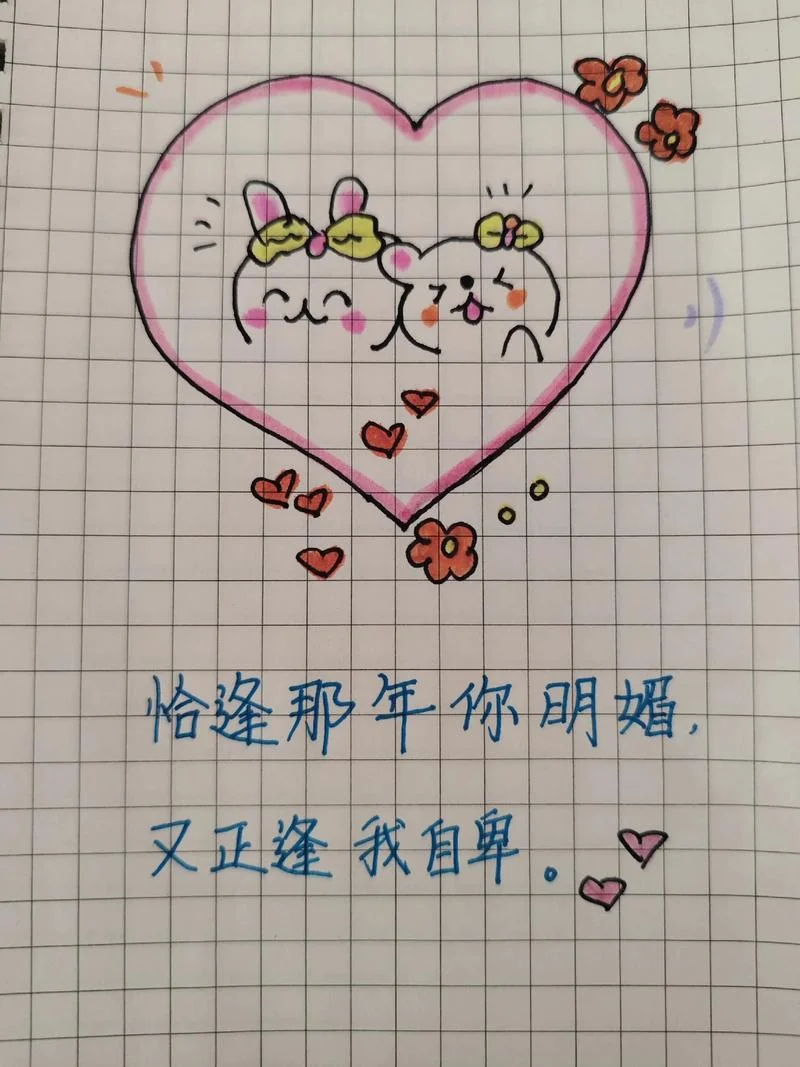 恰逢那年你明媚,
又正逢我自卑。